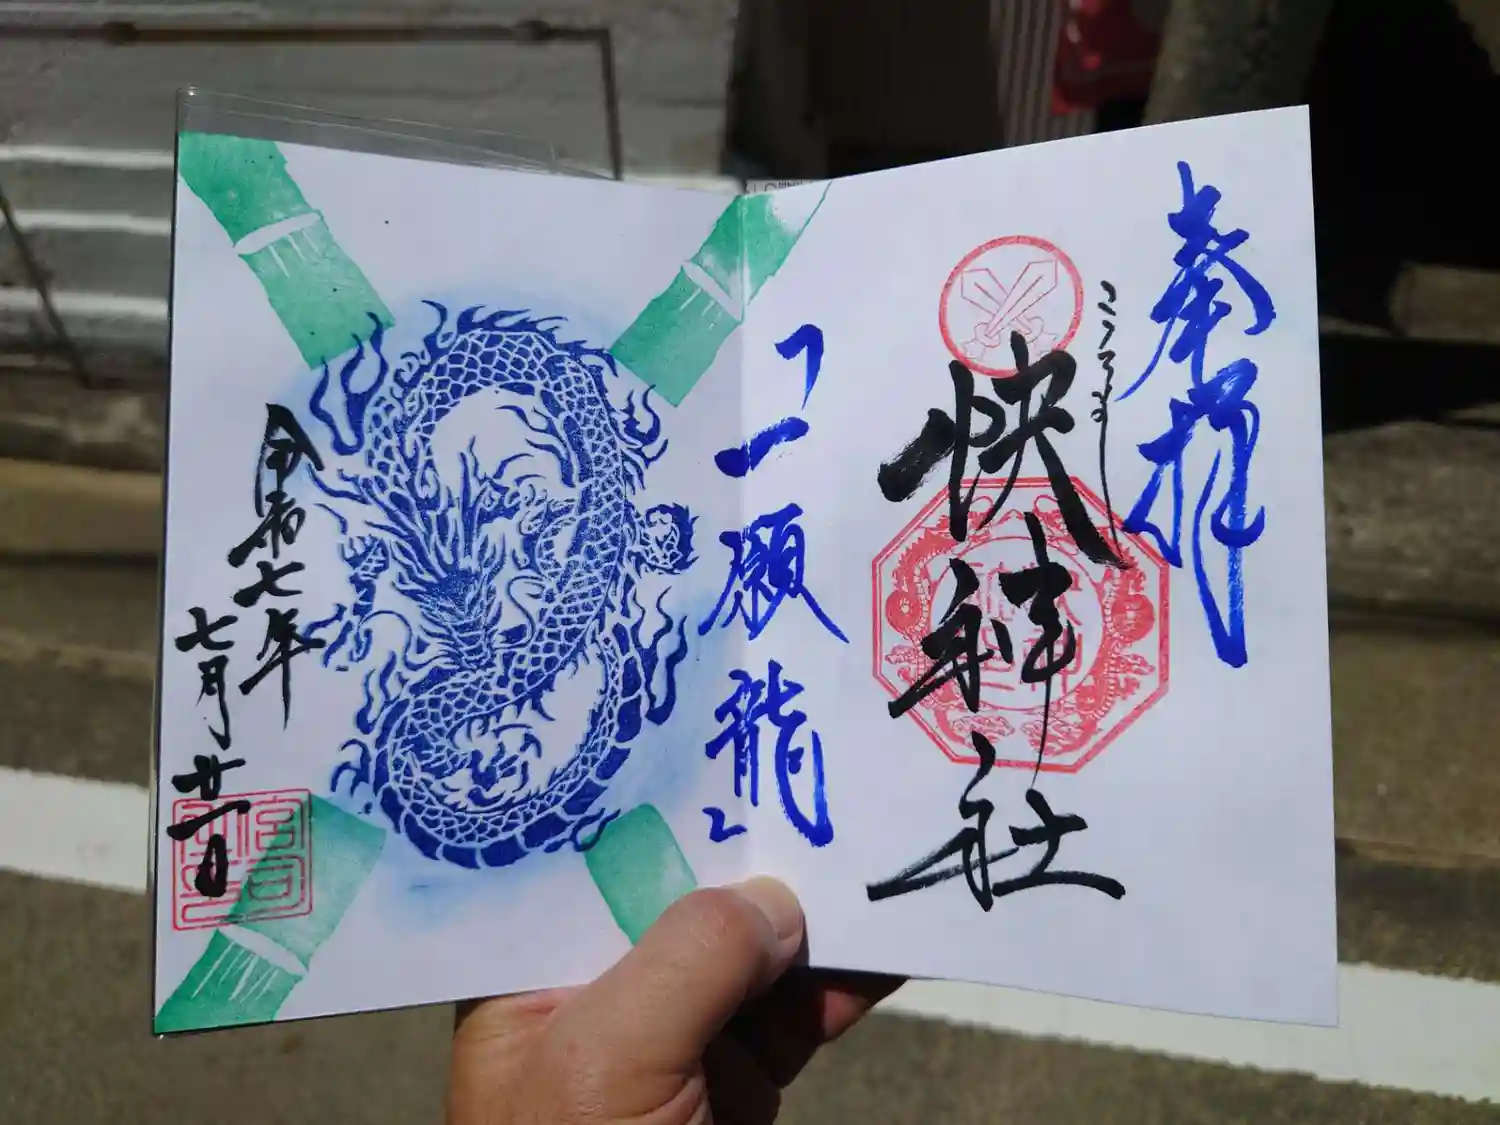 奉拝
こころよし
快神社
「一願龍」
令和七年
七月廿一日
宮司之印